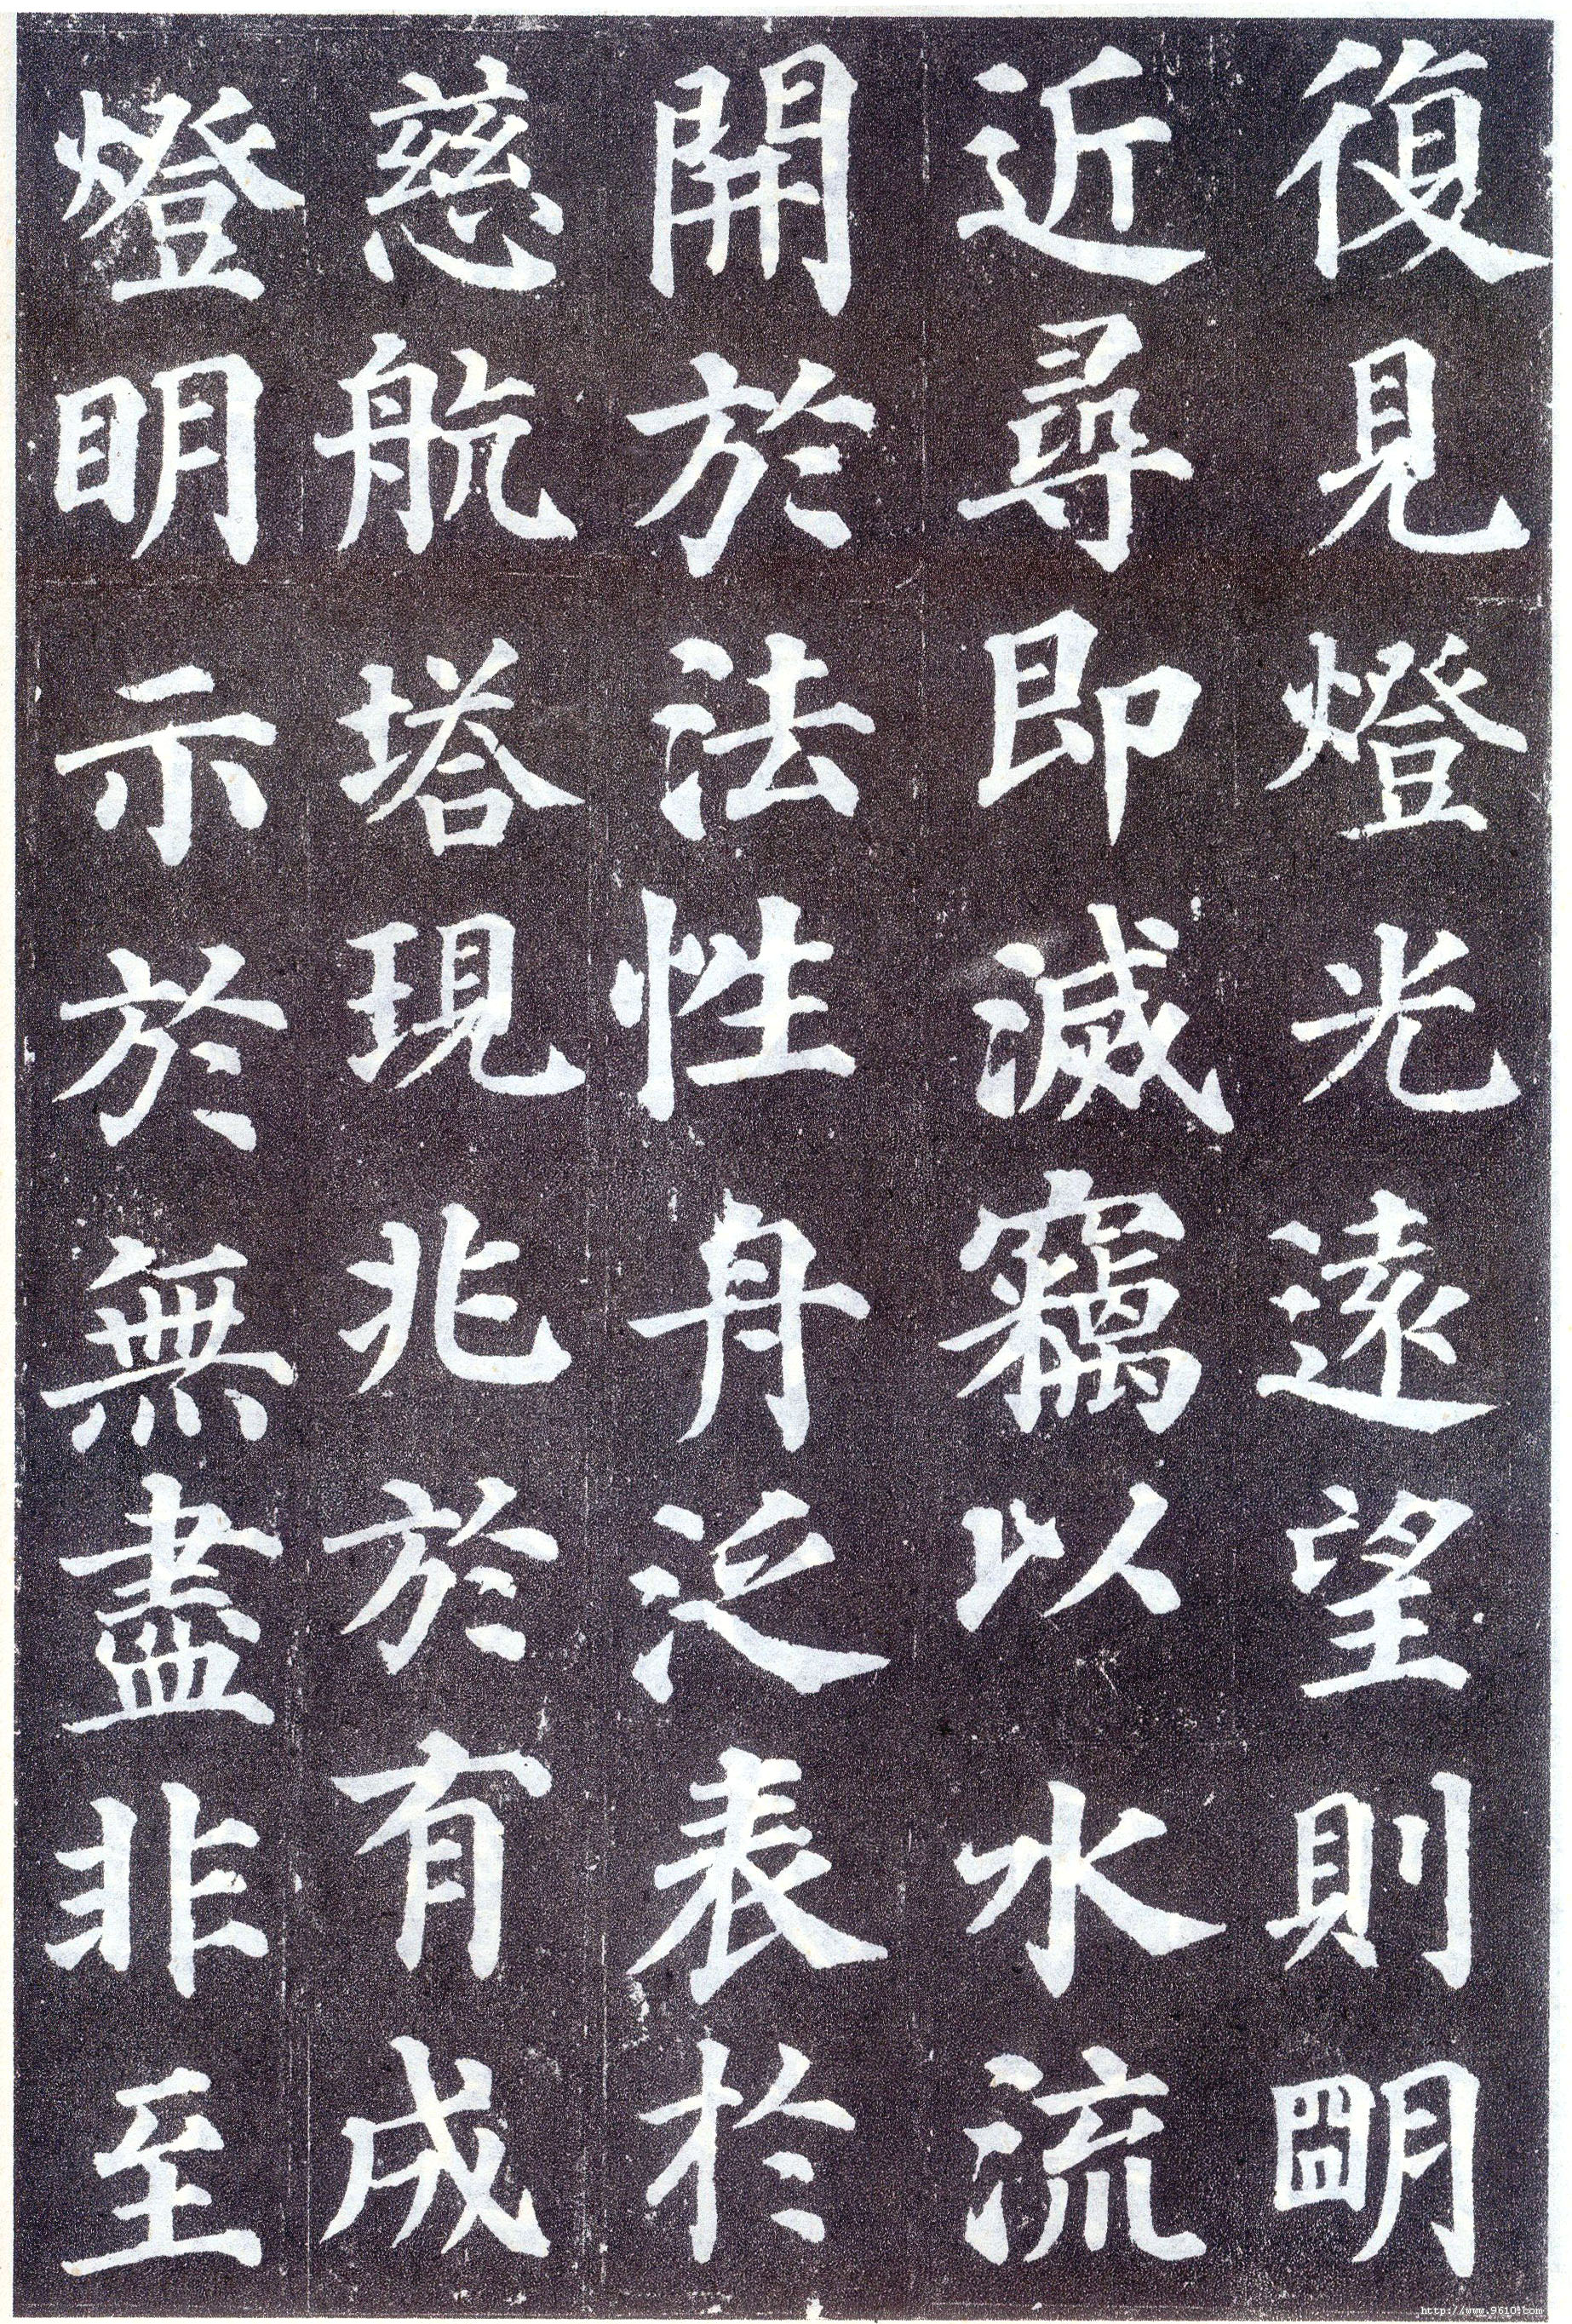 復見燈光遠望則明
近尋即滅竊以水流
開於法性舟泛表於
慈航塔現兆於有成
燈明示於無盡非至
http://www.9610.com